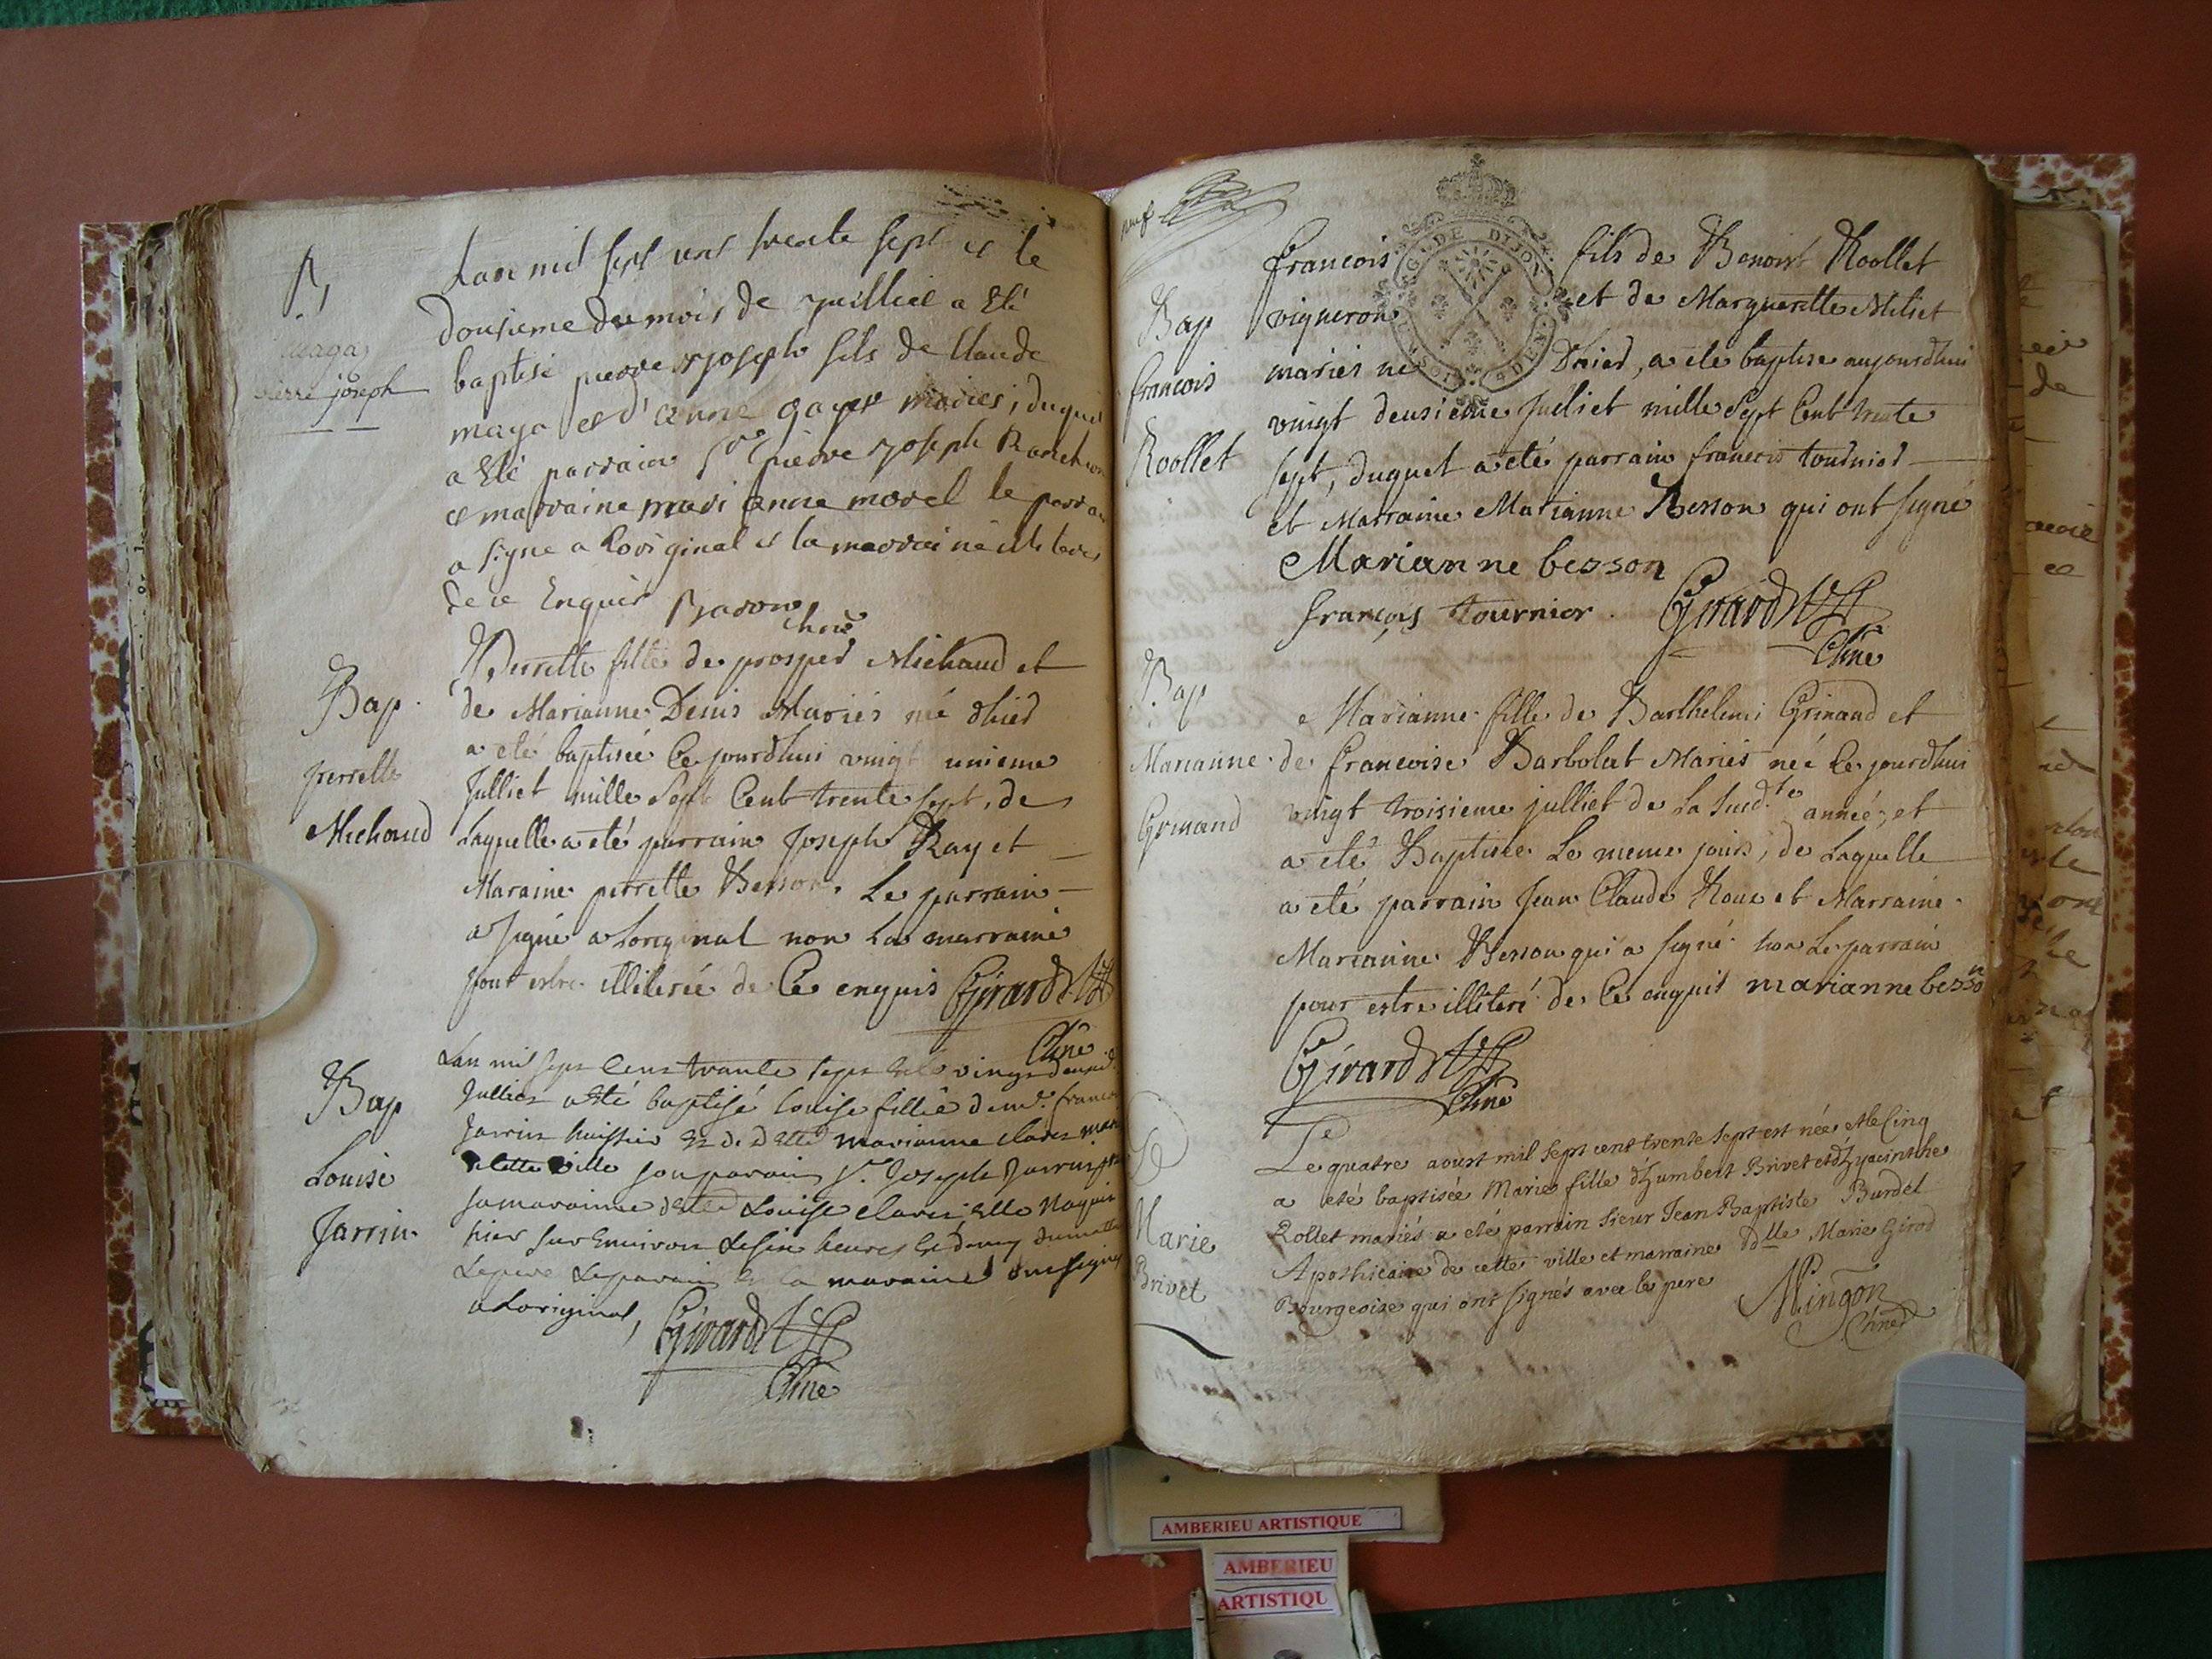 B
maga
pierre joseph
Lan mil sept cent trente sept et le
dousieme du mois de juilliet a Eté
baptisé pierre joseph fils de Claude
maga et d'anne gayet mariés, duquel
a Eté parrain Sr pierre joseph
et marraine mari anne morel le parrain
a signe a Loriginal et la marraine
de ce Enquis Baron
chne
Bap
perrette
Michaud
Perrette fille de prosper Michaud et
de Marianne Denis Mariés né dhier
a eté baptisée Ce jourdhuy vingt unieme
Julliet mille Sept Cent trente sept, de
Laquelle a eté parrain Joseph Ray et
Maraine perrette Besson. Le parrain
a signé a Loriginal non La marraine
pour estre illiterée de Ce enquis Girard
Chne
Bap
Louise
Jarrin
Lan mil sept Cent trante sept
Julliet a Eté baptisé Louise fille
Jarrin huissier et de delle marianne
ville son parain Sr. Joseph Jarrin
sa maraine delle Louise
hier sur Environ Les six heures et demy
Le pere Le parain et la maraine ont signé
a Loriginal, Girard
Chne
neuf
Bap
francois
Roollet
G. DE DIJON
francois fils de Benoist Roollet
vigneron et de Marguerette Miliet
mariés né Dhier, a eté baptise aujourdhui
vingt deusieme Julliet mille Sept Cent trente
sept, duquel a eté parrain francois tournier
et Marraine Marianne Besson qui ont signé
Marianne besson
françois tournier. Girard
Chne
Bap
Marianne
Grinand
Marianne fille de Barthelemi Grinand et
de francoise Barbolat Mariés née Ce jourdhui
vingt troisieme julliet de La susd.te année, et
a eté Baptisée Le meme jour, de Laquelle
a eté parrain Jean Claude Roux et Marraine
Marianne Besson qui a signé non Le parrain
pour estre illiteré de Ce enquis marianne besson
Girard
Chne
Marie
Brivet
Le quatre aoust mil sept cent trente sept est née et le cinq
a eté baptisée Marie fille d'humbert Brivet et d'hyacinthe
Rollet mariés a eté parrain sieur Jean Baptiste Burdel
Apothicaire de cette ville et marraine Dlle Marie Girod
Bourgeoise qui ont signés avec le pere Mingon
Chne
AMBERIEU ARTISTIQUE
AMBERIEU
ARTISTIQU